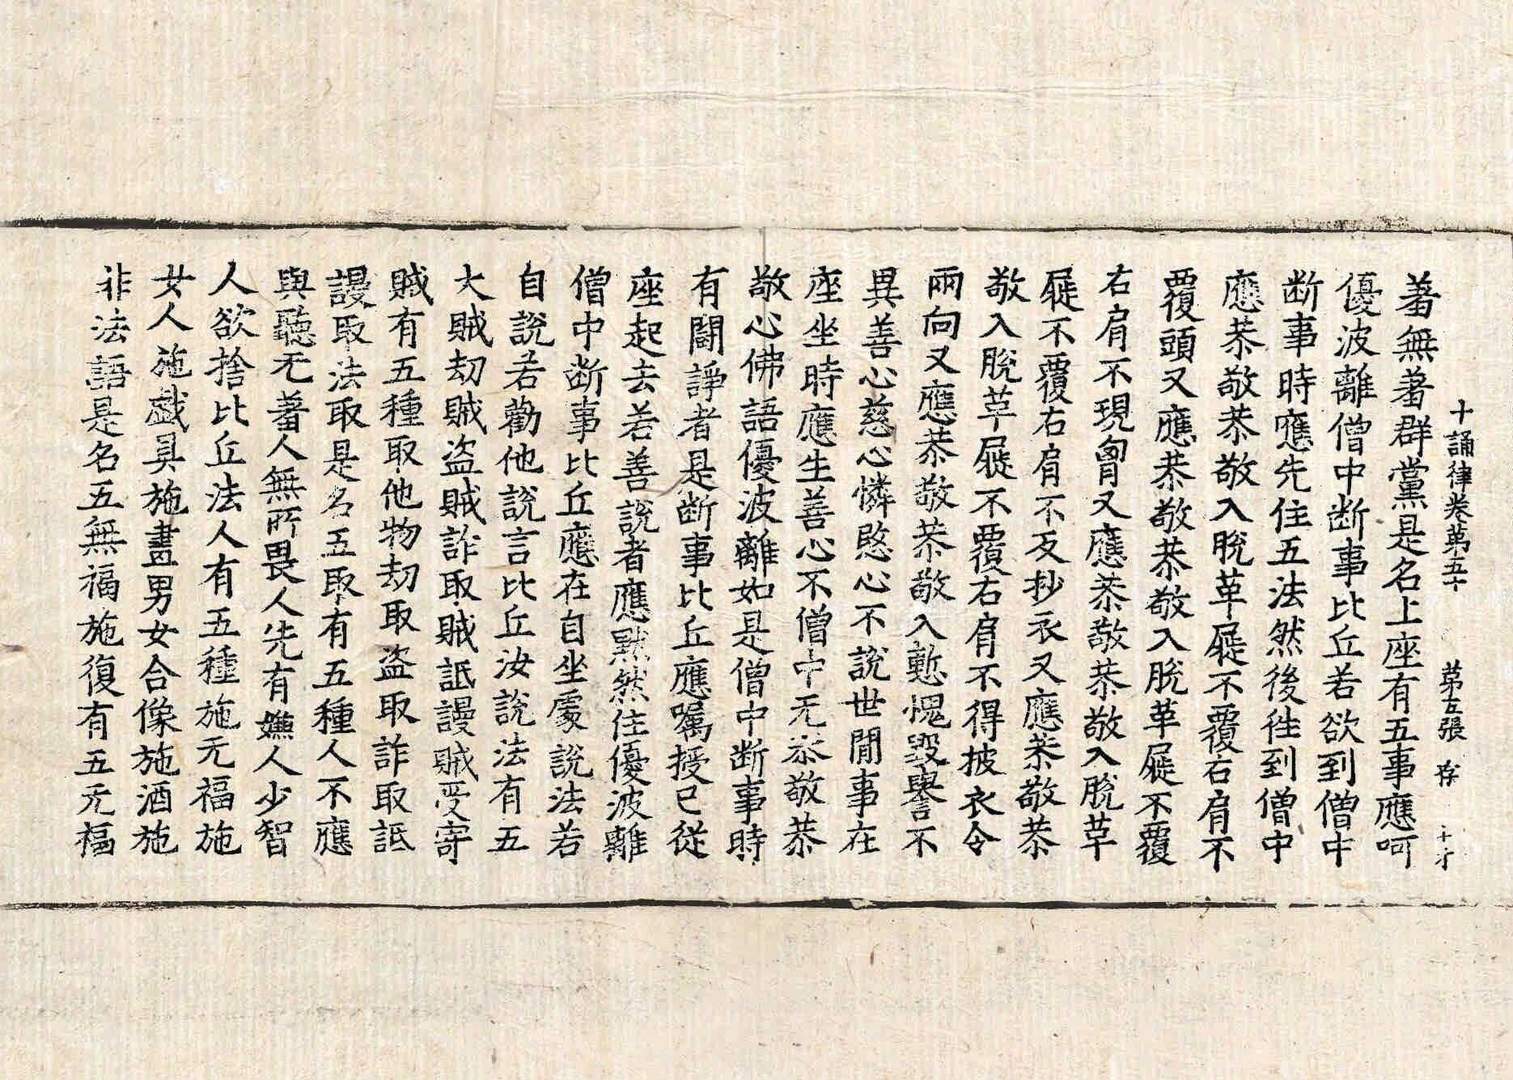 十誦律卷第五十　第五張　存　十才
著無著群黨是名上座有五事應呵
優波離僧中断事比丘若欲到僧中
断事時應先住五法然後徃到僧中
應恭敬恭敬入脫革屣不覆右肩不
覆頭又應恭敬敬恭敬入脫革屣不覆
右肩不現胷又應恭敬恭敬入脫革
屣不覆右肩不反抄衣又應恭敬恭
敬入脫革屣不覆右肩不得披衣令
兩向又應恭敬恭敬入慙愧毀譽不
異善心慈心憐愍心不說世閒事在
座坐時應生善心不僧中无恭敬恭
敬心佛語優波離如是僧中断事時
有鬪諍者是断事比丘應囑授已從
座起去若善說者應默然住優波離
僧中断事比丘應在自坐處說法若
自說若勸他說言比丘汝說法有五
大賊劫賊盜賊詐取賊詆謾賊受寄
賊有五種取他物劫取盜取詐取詆
謾取法取是名五取有五種人不應
與聽无著人無所畏人先有嫌人少智
人欲捨比丘法人有五種施无福施
女人施戱具施畫男女合像施酒施
非法語是名五無福施復有五无福